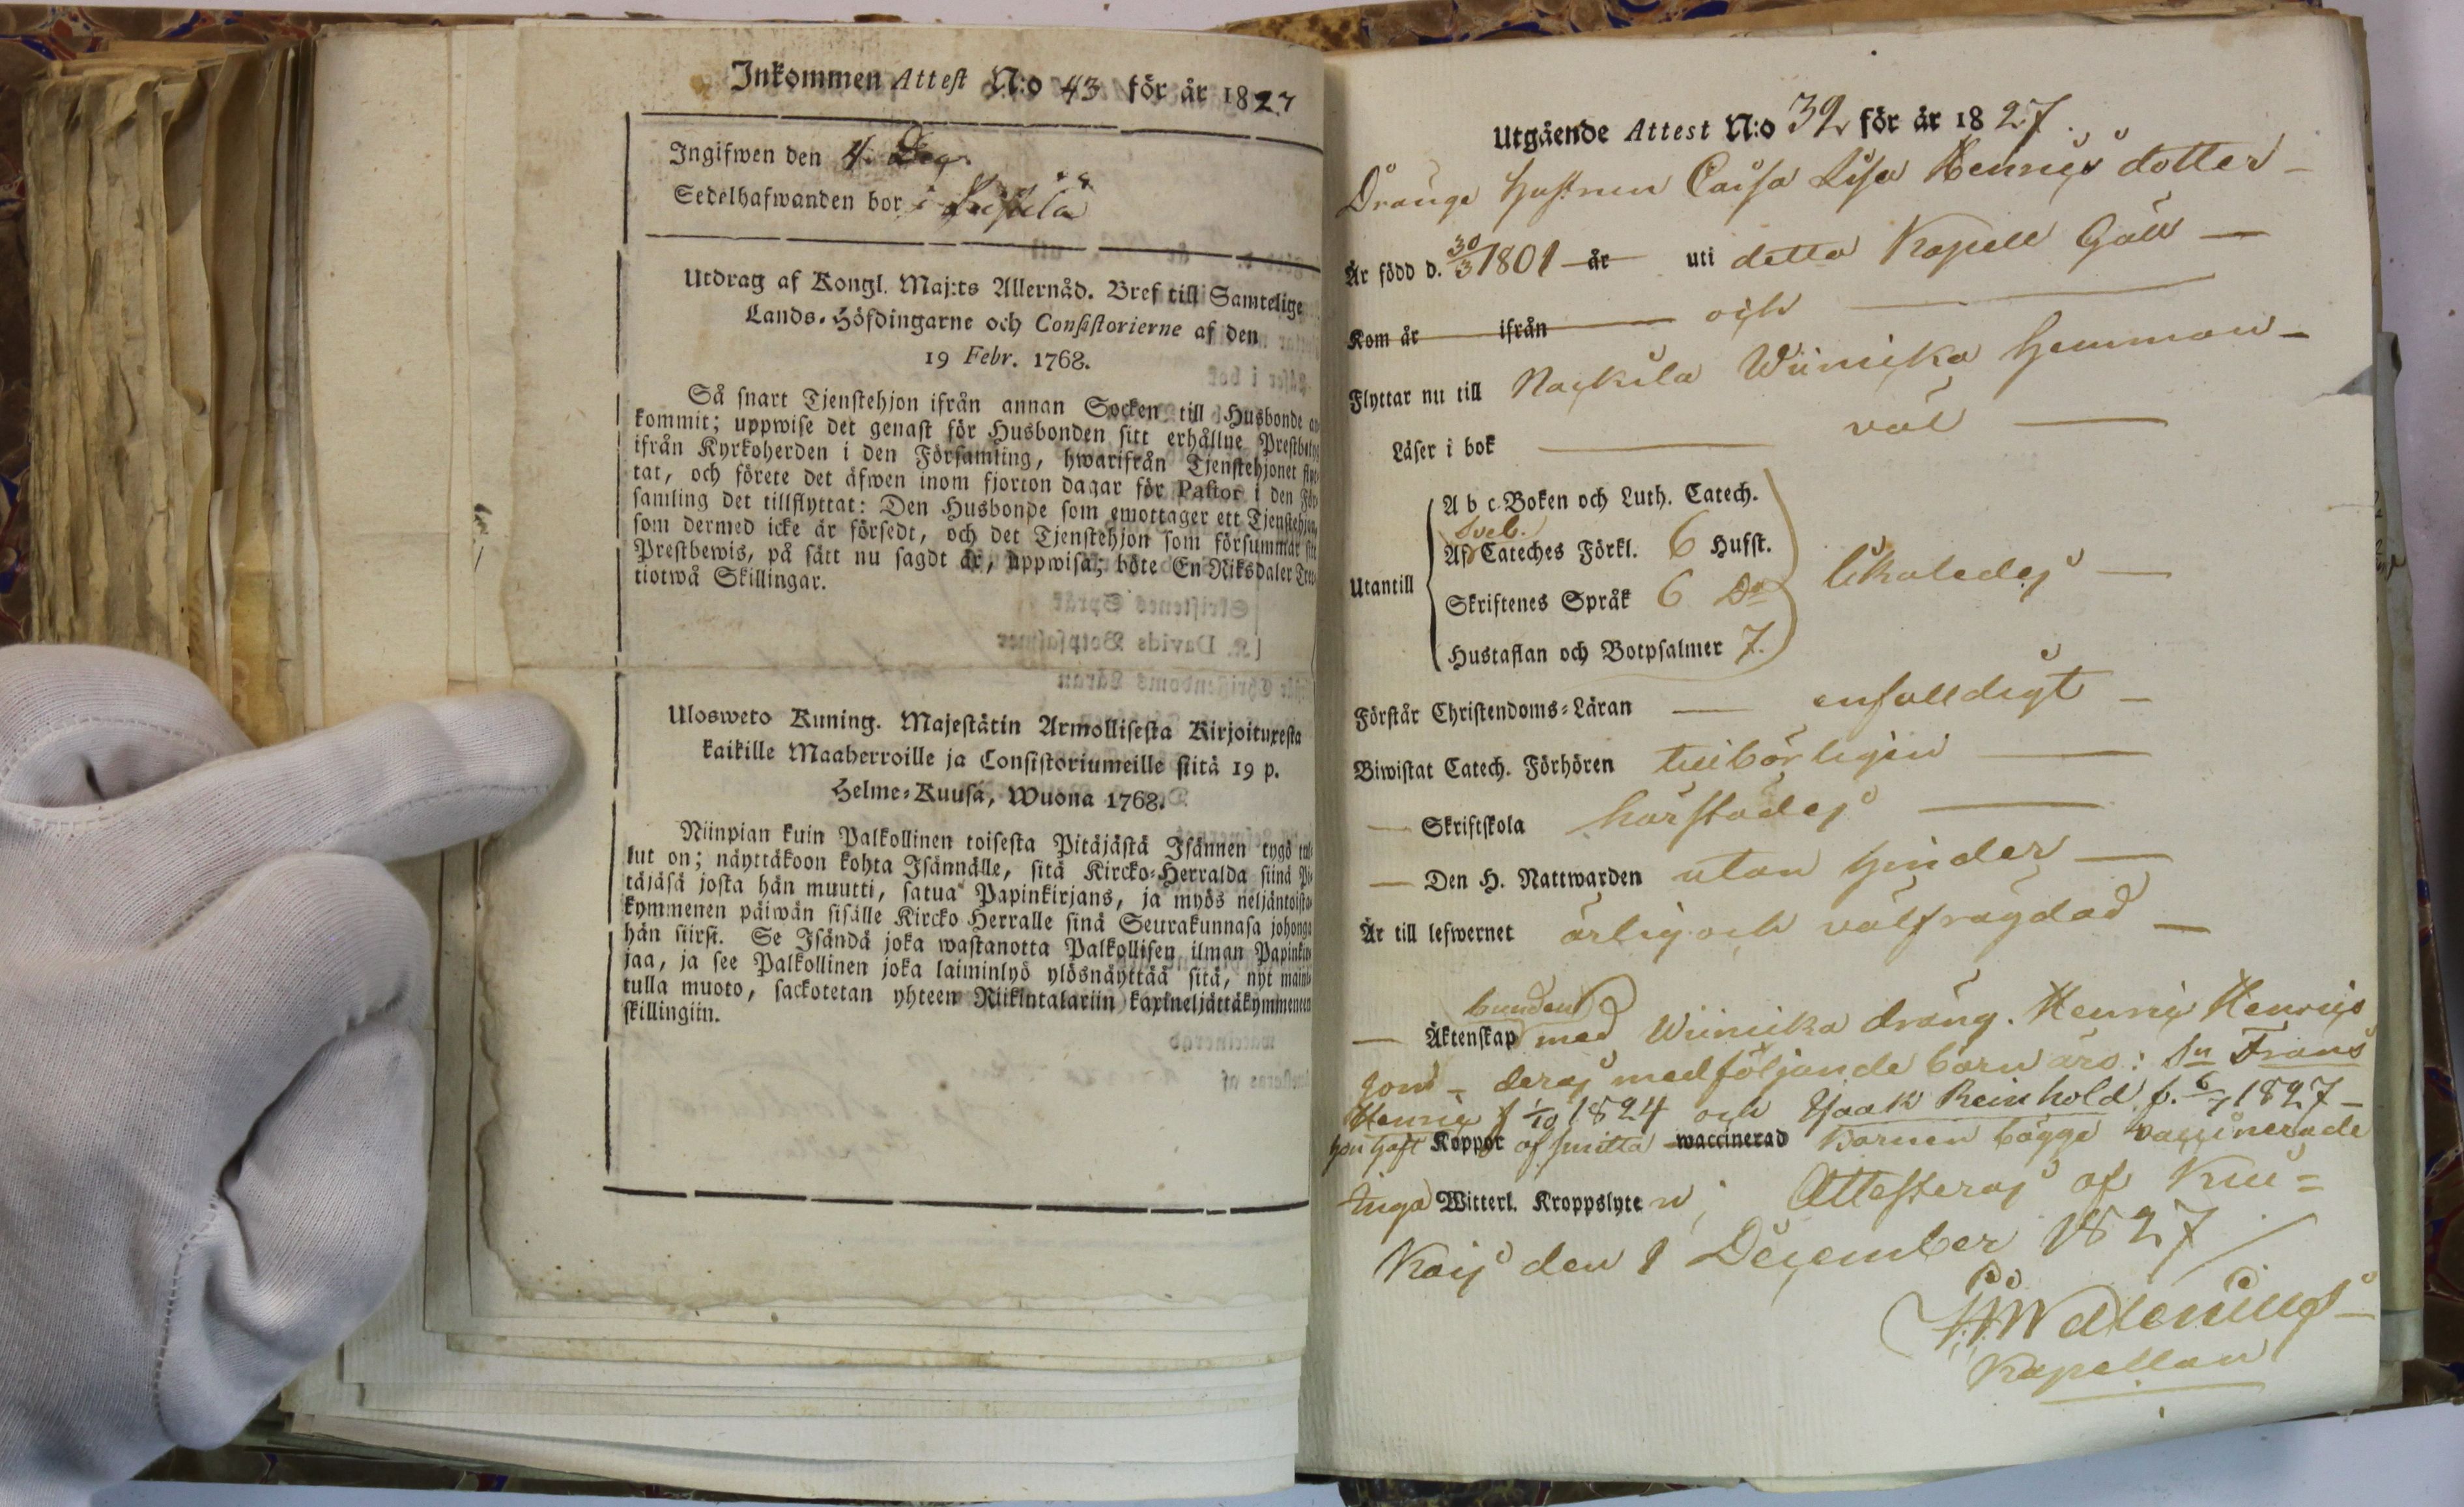 Inkommen Attest N:o 43 för år 1827
Ingifwen den 4. Dec.
Sedelhafwanden bor i
Utdrag af Kongl. Maj:ts Allernåd. Bref till Samtelige
Lands-Höfdingarne och Consistorierne af den
19 Febr. 1768.
Så snart Tjenstehjon ifrån annan Socken till Husbonde an
kommit; uppwise det genast för Husbonden sitt erhållne Prestbetyg
ifrån Kyrkoherden i den Församling, hwarifrån Tjenstehjonet flyt
tat, och förete det äfwen inom fjorton dagar för Pastor i den För
samling det tillflyttat: Den Husbonde som emottager ett Tjenstehjon,
som dermed icke är försedt, och det Tjenstehjon som försummar sitt
Prestbewis, på sätt nu sagdt är, uppwisa; böte En Riksdaler Tret
tiotwå Skillingar.
Ulosweto Kuning. Majestätin Armollisesta Kirjoituxesta
kaikille Maaherroille ja Consistoriumeille siitä 19 p.
Helme-Kuusa, Wuona 1768.
Niinpian kuin Palkollinen toisesta Pitäjästä Isännen tygö tul
lut on; näyttäkoon kohta Isännälle, sitä Kircko-Herralda siinä Pi
täjäsä josta hän muutti, satua Papinkirjans, ja myös neljäntoista
kymmenen päiwän sisälle Kircko Herralle sinä Seurakunnasa johonga
hän siirsi. Se Isändä joka wastanotta Palkollisen ilman Papinkir
jaa, ja see Palkollinen joka laiminlyö ylösnäyttää sitä, nyt mainit
tulla muoto, sackotetan yhteen Riikintalariin kaxineljättäkymmeneen
skillingiin.
Utgående Attest N:o 32 för år 1827.
Drängs hustrun Caisa Lisa Henrics dotter –
Är född d. 30/3 1801 år uti detta Kapell Gäll –
Kom år ifrån och
Flyttar nu till Nackila Wiinicka hemman –
Läser i bok väl
A b c-Boken och Luth. Catech.
Sveb.
Af Cateches Förkl. 6 Hufst.
Utantill Skriftenes Språk 6 Do likaledes –
Hustaflan och Botpsalmer 7.
Förstår Christendoms-Läran – enfalldigt –
Biwistat Catech. Förhören tillbörligen
– Skriftskola härstädes
– Den H. Nattwarden utan hinder –
Är till lefwernet ärlig och välfrägdad –
bunden
– Äktenskap med Wiinicka dräng. Henric Henrics
son – deras medföljande barn äro: Sn Frans
Henric f 1/10 1824 och Isaak Reinhold f. 6/7 1827 –
hon haft Koppor af smitta waccinerad Barnen bägge vaccinerade
Inga Witterl. Kroppslyten; Attesteras af Kiu=
Kais den 1 December 1827
Kapellan